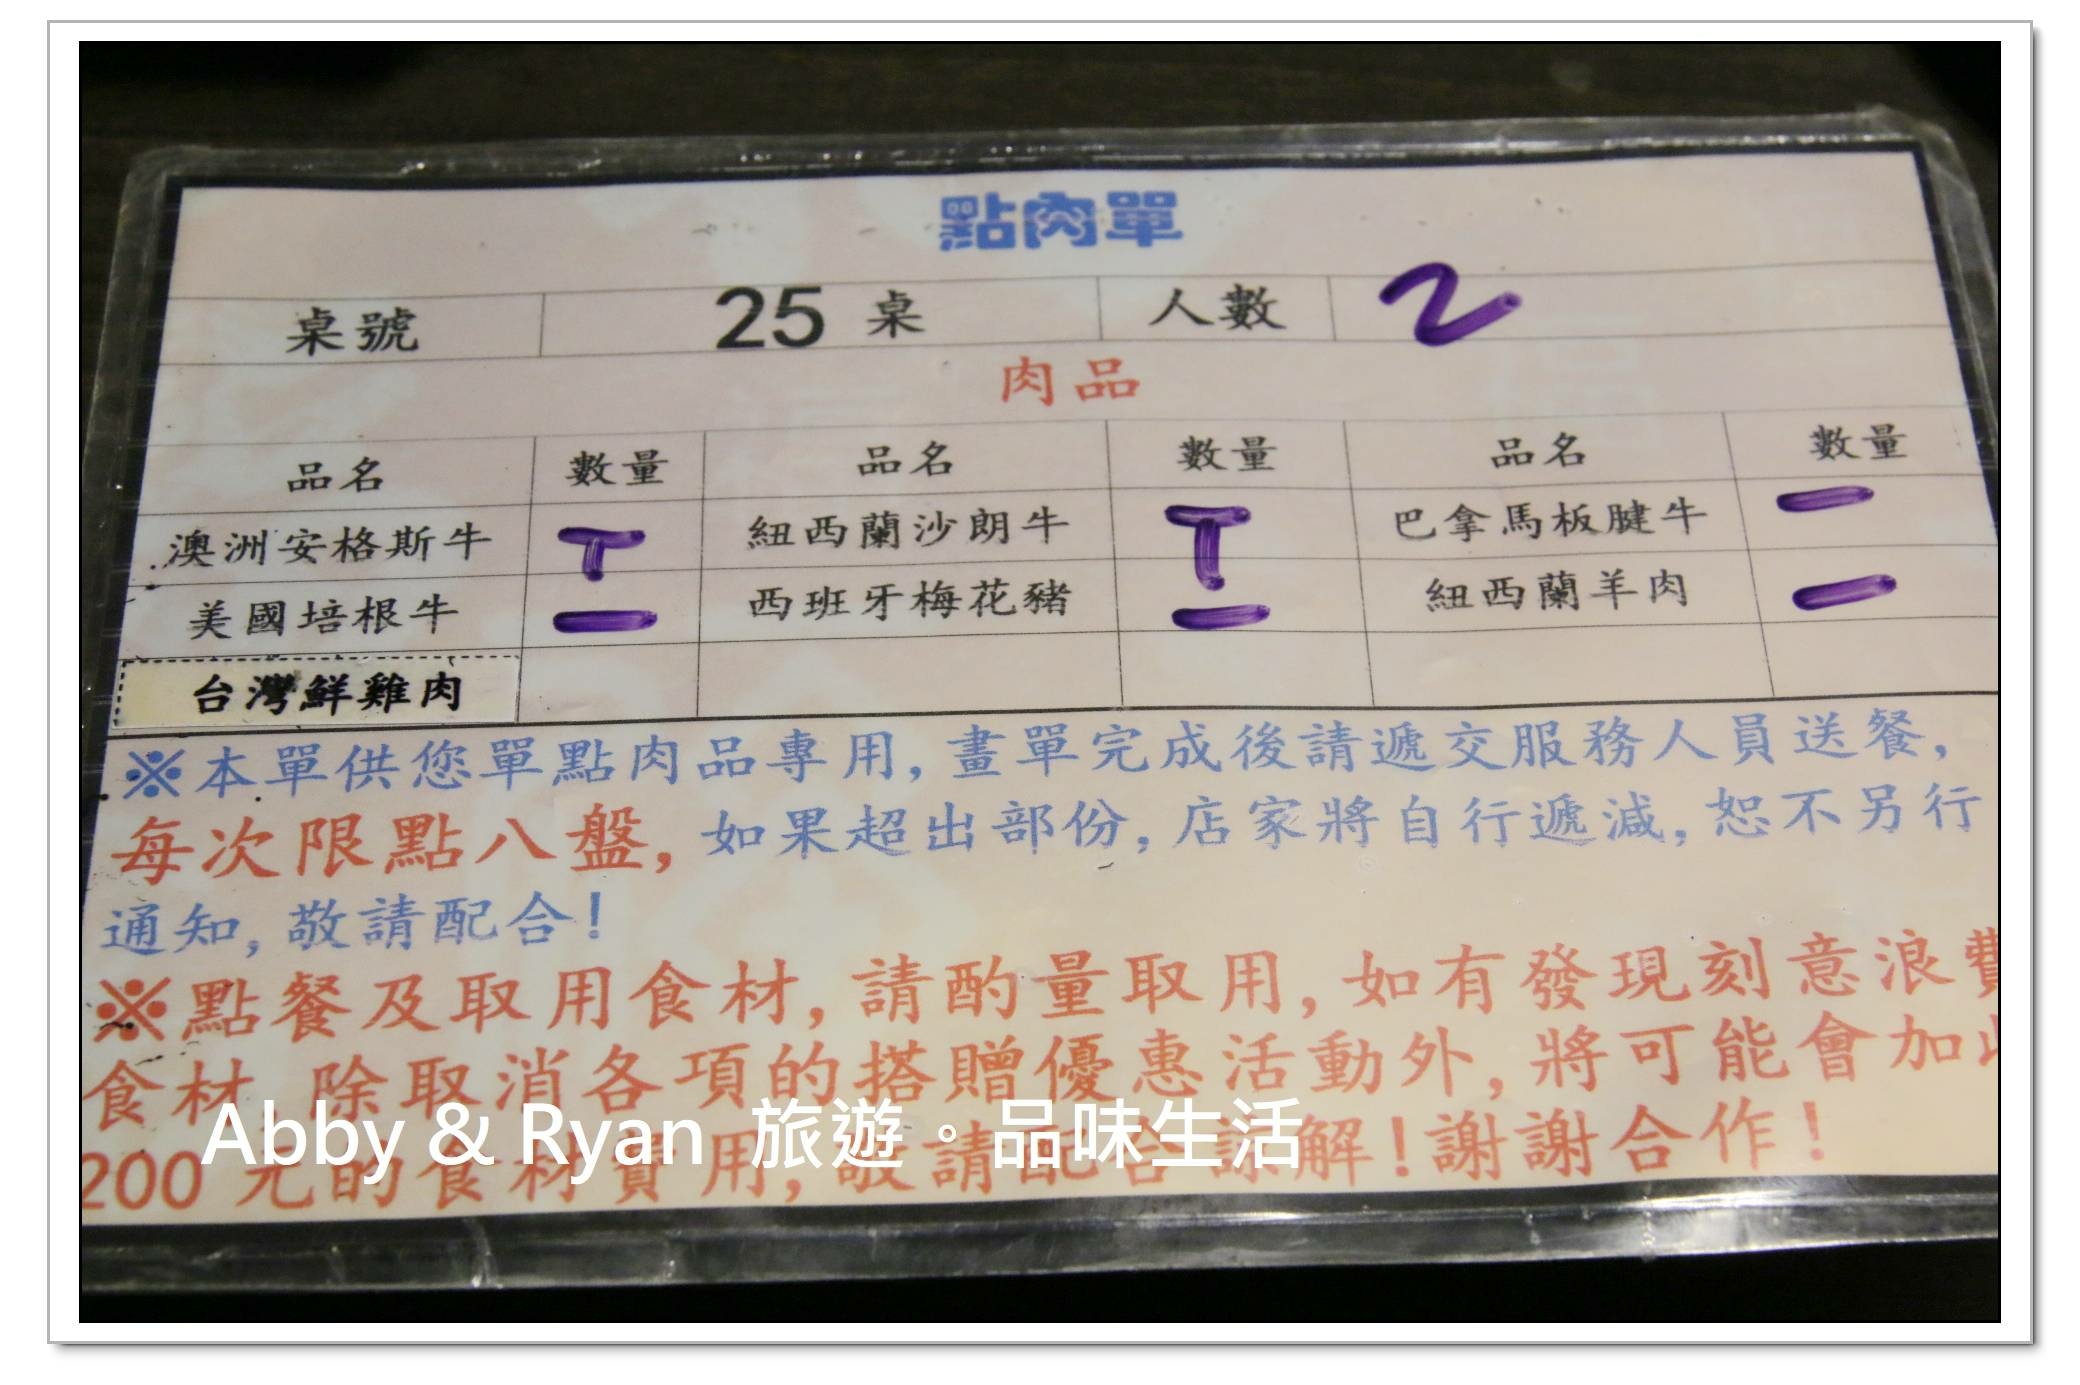 點肉單
桌號 25 桌 人數 2
肉品
品名 數量 品名 數量 品名 數量
澳洲安格斯牛 T 紐西蘭沙朗牛 T 巴拿馬板腱牛 一
美國培根牛 一 西班牙梅花豬 一 紐西蘭羊肉 一
台灣鮮雞肉
※本單供您單點肉品專用,畫單完成後請遞交服務人員送餐,
每次限點八盤,如果超出部份,店家將自行遞減,恕不另行
通知,敬請配合!
※點餐及取用食材,請酌量取用,如有發現刻意浪費
食材,除取消各項的搭贈優惠活動外,將可能會加
200 元的食材費用,敬請配合諒解!謝謝合作!
Abby & Ryan 旅遊。品味生活